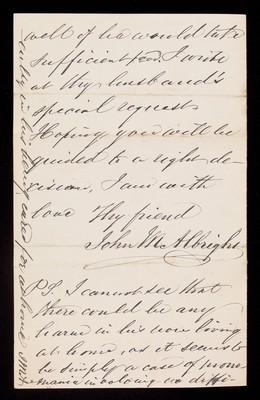 well if he would take
sufficient food, I write
at thy husband's
special request
Hoping you will be
guided to a right de-
cision, I am with
love Thy friend
John M. Albright
P.S. I cannot see that
there could be any
harm in his now living
at home, as it seems to
be simply a case of mono
mania involving no diffi-
culty in his being cared for at home